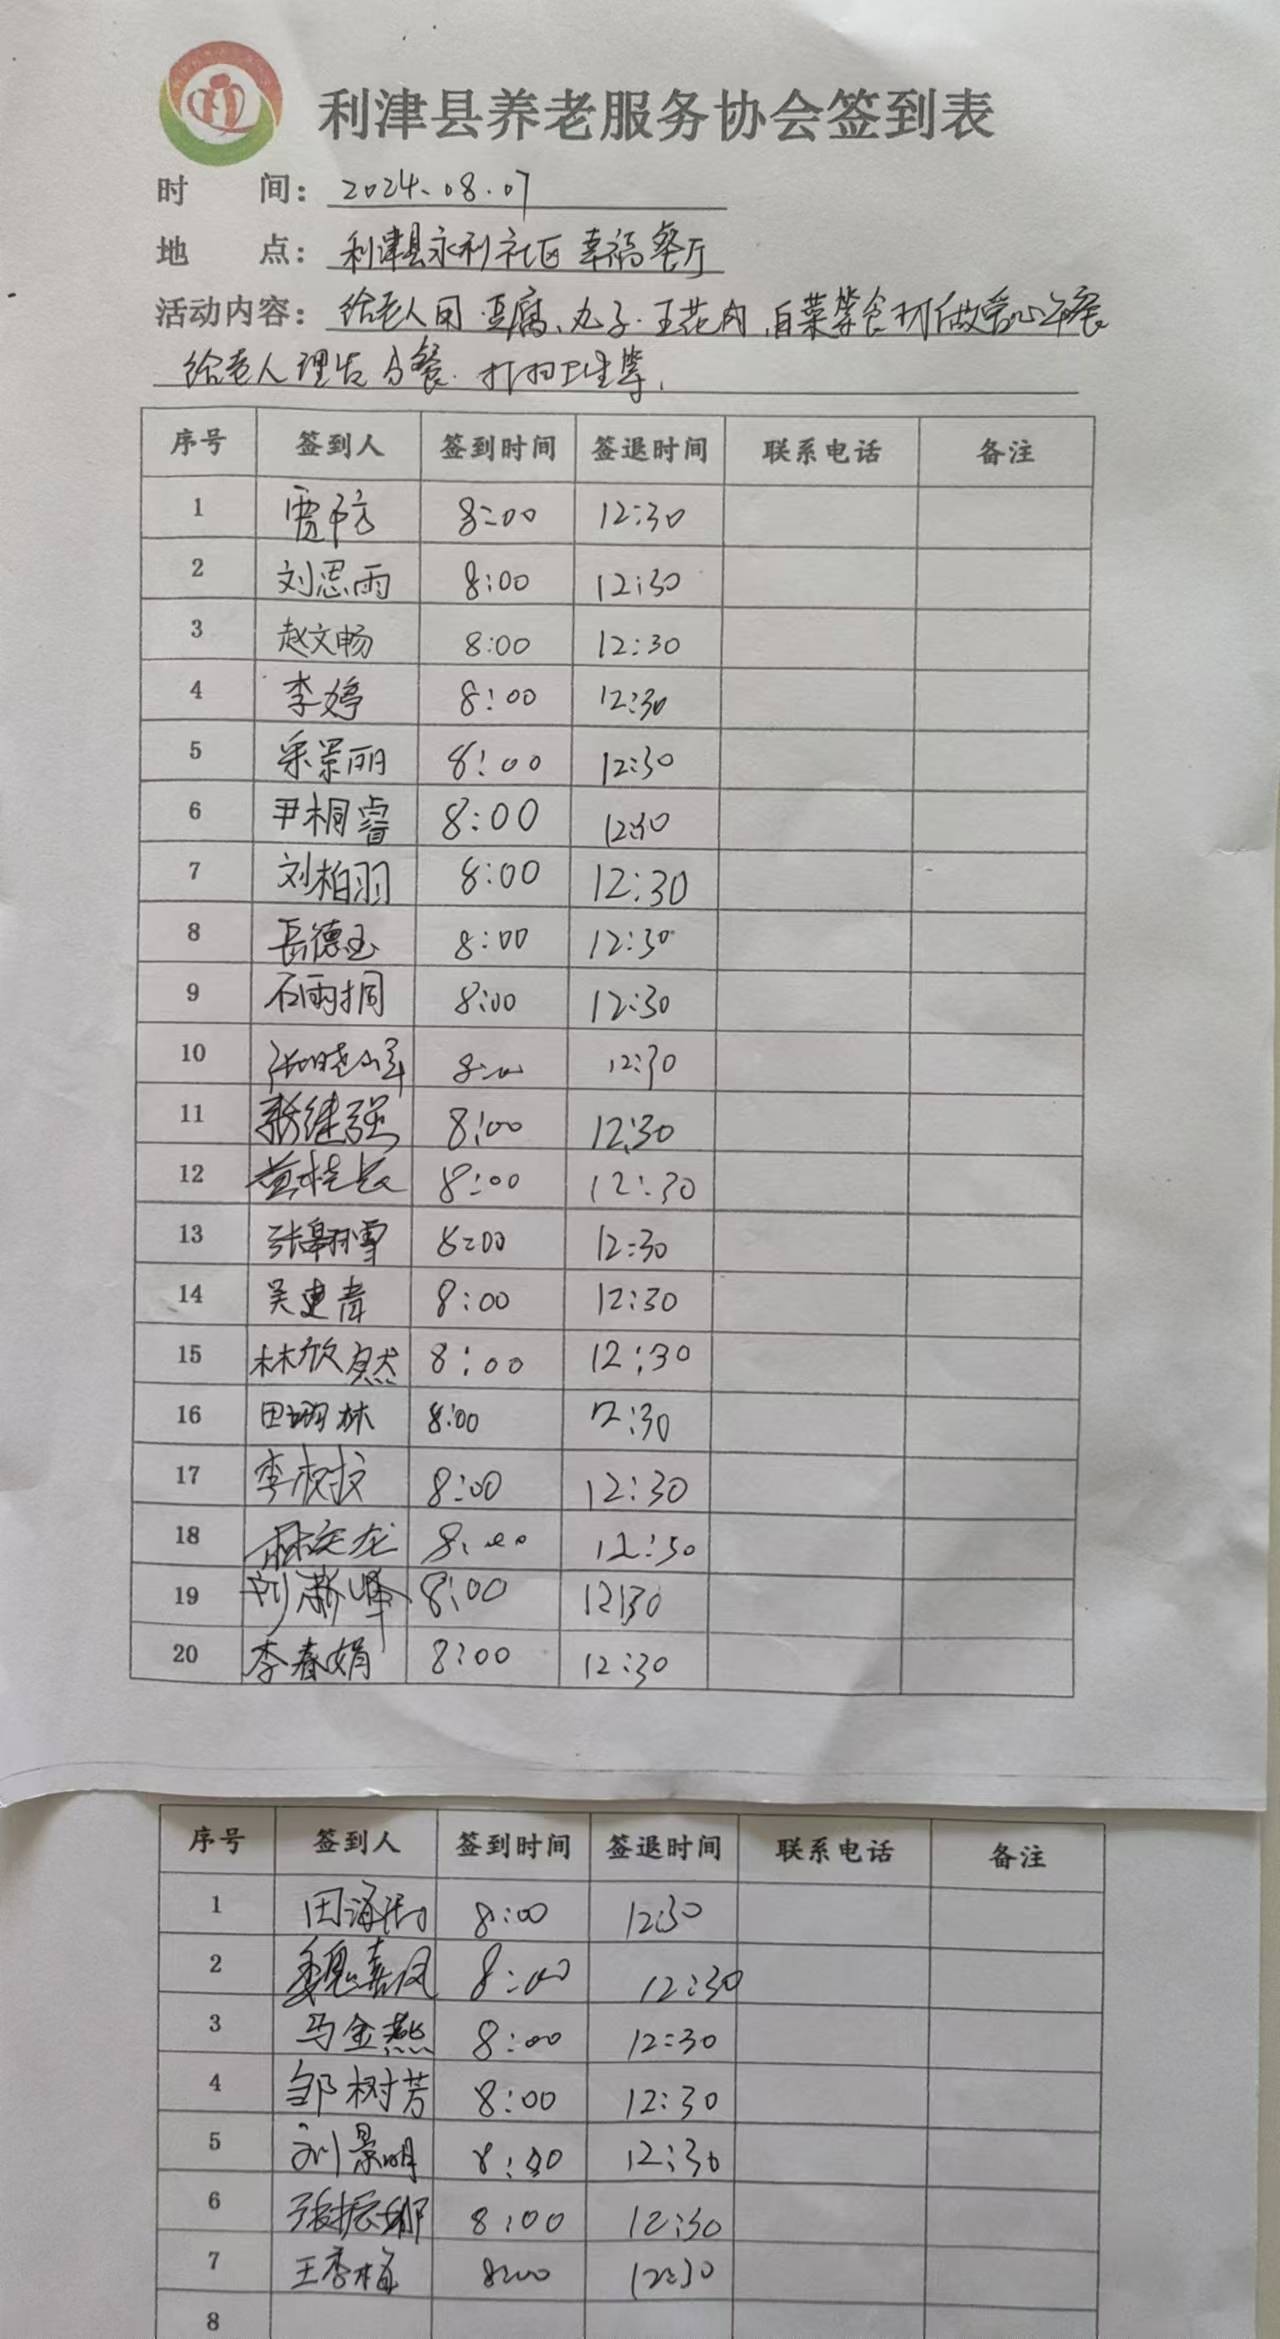 利津县养老服务协会签到表
时 间：2024.08.07
地 点：利津县永利社区幸福餐厅
活动内容：给老人用豆腐、丸子、五花肉、白菜等食材做爱心午餐
给老人理发 分餐 打扫卫生等
序号 签到人 签到时间 签退时间 联系电话 备注
1 贾 8:00 12:30
2 刘思雨 8:00 12:30
3 赵文畅 8:00 12:30
4 李婷 8:00 12:30
5 景丽 8:00 12:30
6 尹桐睿 8:00 12:30
7 刘柏羽 8:00 12:30
8 岳德玉 8:00 12:30
9 石雨桐 8:00 12:30
10 张晓军 8:00 12:30
11 继强 8:00 12:30
12 黄桂长 8:00 12:30
13 张翱雪 8:00 12:30
14 吴建青 8:00 12:30
15 林欣然 8:00 12:30
16 田林 8:00 12:30
17 李 8:00 12:30
18 林龙 8:00 12:30
19 刘新峰 8:00 12:30
20 李春娟 8:00 12:30
序号 签到人 签到时间 签退时间 联系电话 备注
1 田海 8:00 12:30
2 魏嘉凤 8:00 12:30
3 马金燕 8:00 12:30
4 邹树芳 8:00 12:30
5 刘景明 8:00 12:30
6 张振娜 8:00 12:30
7 王季梅 8:00 12:30
8